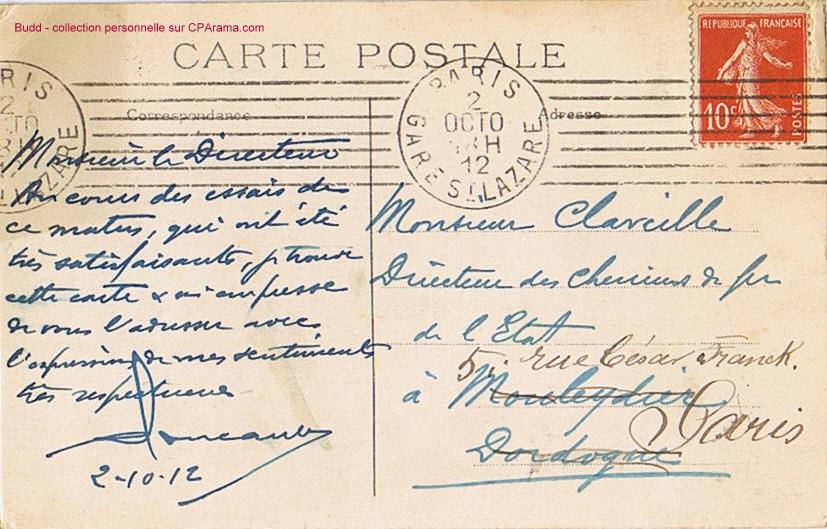 Budd - collection personnelle sur CPArama.com
CARTE POSTALE
Correspondance
Adresse
PARIS
2
OCTO
12
GARE ST LAZARE
REPUBLIQUE FRANÇAISE
10c
POSTES
Monsieur le Directeur
Au cours des essais de
ce matin, qui ont été
très satisfaisants, je trouve
cette carte & m'empresse
de vous l'adresser avec
l'expression de mes sentiments
très respectueux
2-10-12
Monsieur Claveille
Directeur des Chemins de fer
de l'Etat
5, rue César Franck.
à Mouleydier
Paris
Dordogne